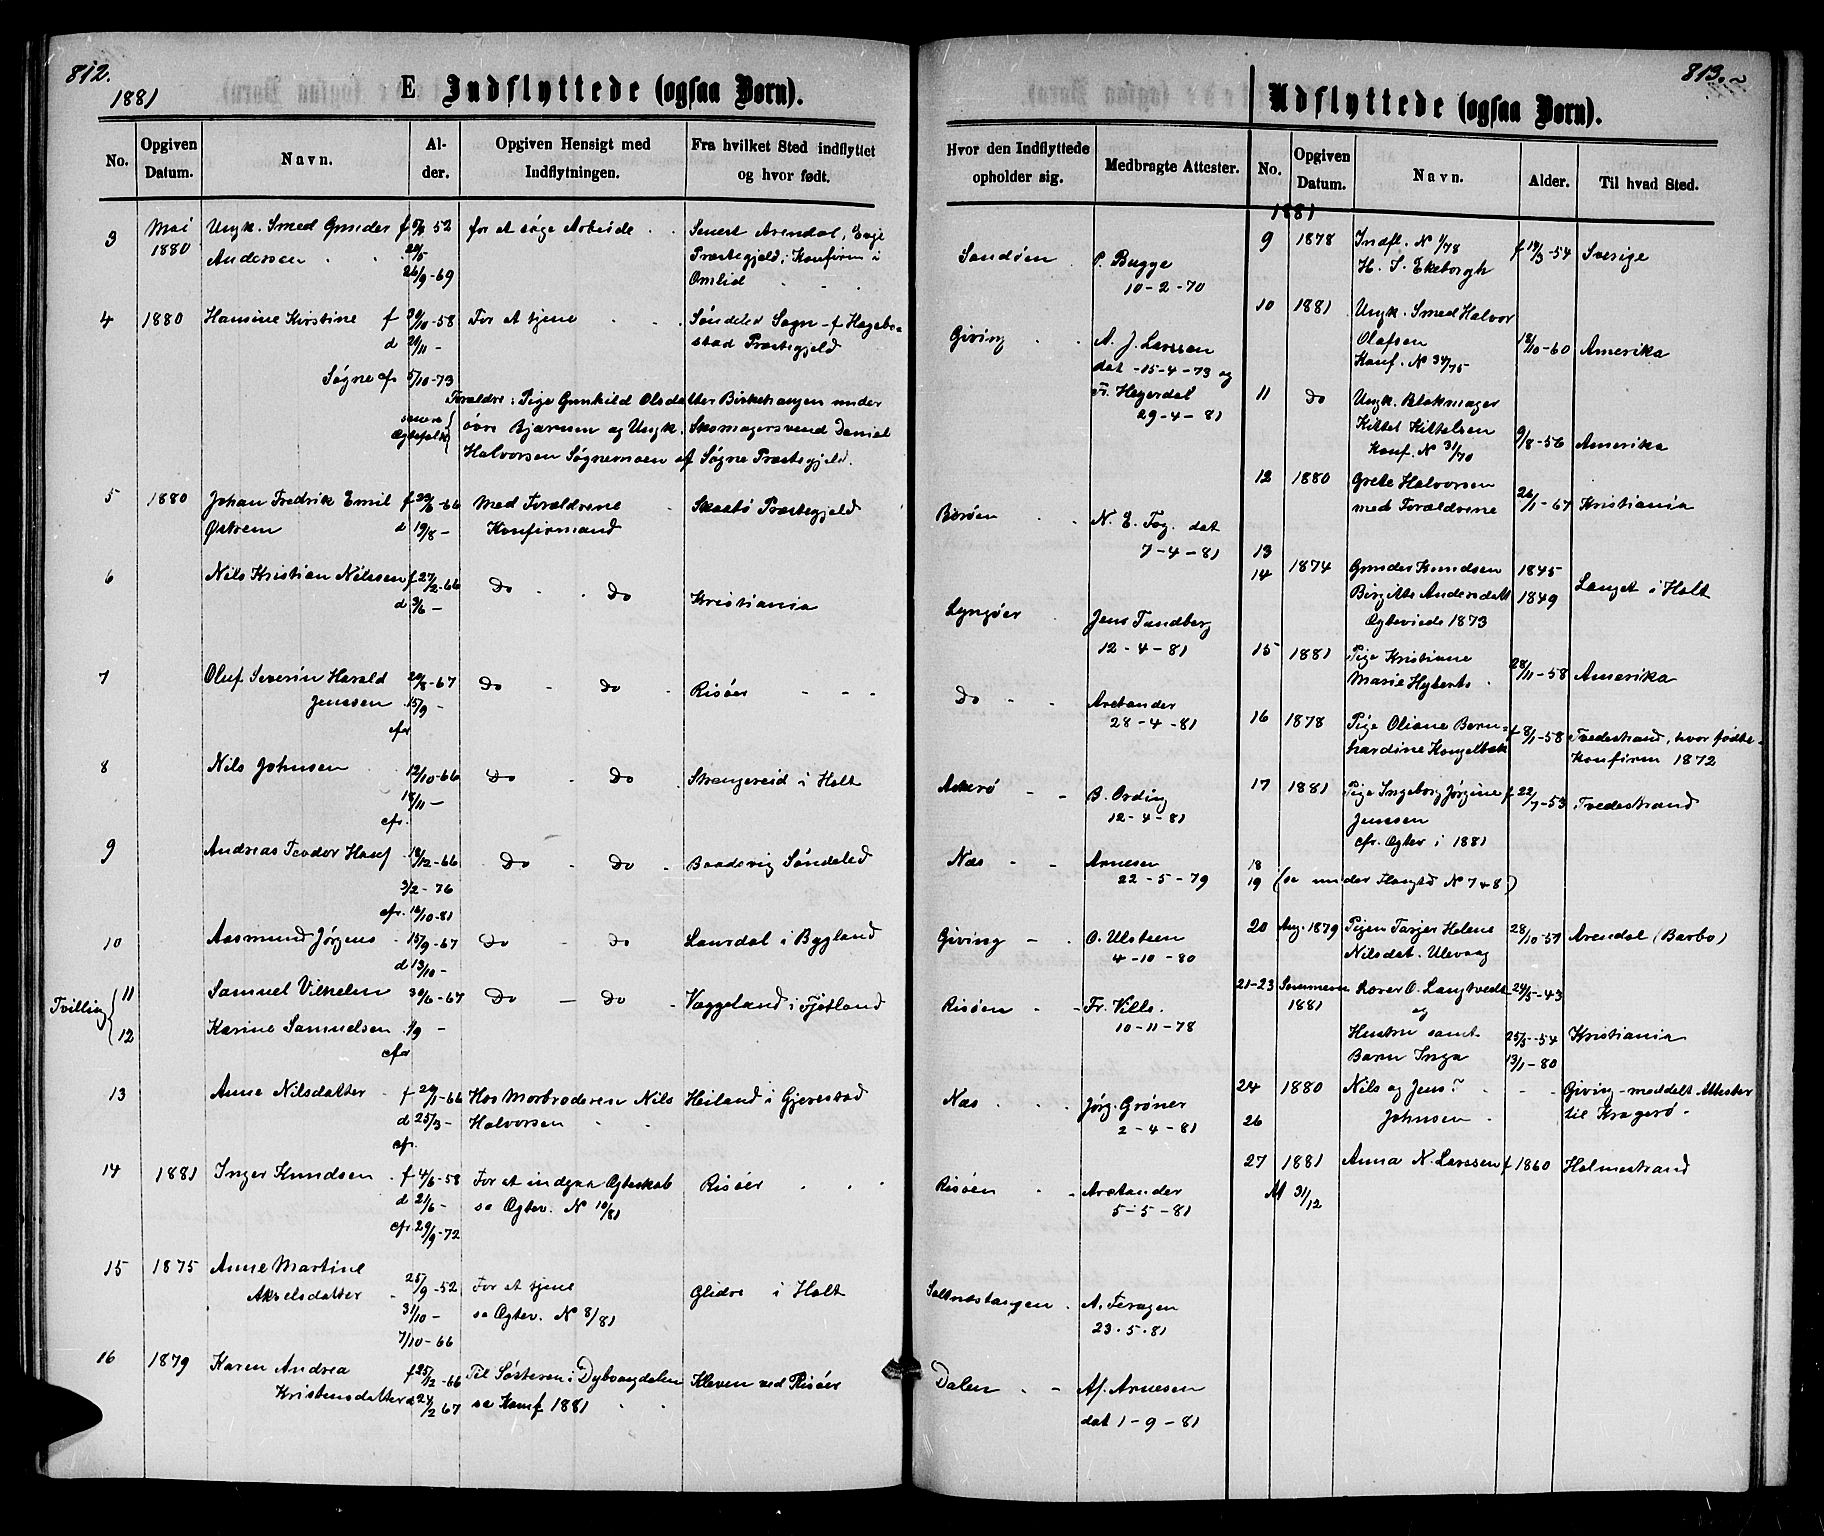 812.
1881
E Indflyttede (ogsaa Børn).
No.
Opgiven Datum.
Navn.
Al-
der.
Opgiven Hensigt med
Indflytningen.
Fra hvilket Sted indflyttet
og hvor født.
3 Mai 1880 Ungk. Smed Gunder f 5/8-52 for at søge Arbeide Senest Arendal, Enge
Anderssen Præstegjeld; Konfirm i
26/9-69 Omlid
4 1880 Hansine Kirstine f 30/10-58 For at tjene Søndeled Sogn - f Hægebo-
d 20/11 - stad Præstegjeld
Søgne cfr 5/10-73
Forældre: Pige Gunhild Olsdatter Birkehaugen under
senere Øvre Bjærum og Ungk. Skomagersvend Daniel
Ægtefolk Halvorsen Søgnemoen af Søgne Præstegjeld.
5 1880 Johan Fredrik Emil f 29/6-66 Med Forældrene Skaatø Præstegjeld
Østrem d 19/8 - Konfirmand
6 Nils Kristian Nilssen f 27/2-66 Do Do Kristiania
d 3/6 -
7 Oluf Severin Harald 20/8-67 Do Do Risøer
Jenssen 15/9 -
cfr
8 Nils Johnsen 12/10-66 Do Do Strengereid i Holt
18/11 -
cfr.
9 Andreas Teodor Hansf 18/12-66 Do Do Baadsvig Søndeled
3/2-76
cfr. 16/10-81
10 Aasmund Jørgens 15/9-67 Do Do Laurdal i Bygland
d 13/10 -
Tvilling 11 Samuel Vilhelm 30/6-67 Do Do Væggeland i Fjotland
12 Karine Samuelsen 1/9 -
cfr
13 Anne Nilsdatter f 20/1-66 Hos Morbroderen Nils Heiland i Gjerestad
d 25/3 - Halvorsen
cfr.
14 1881 Inger Knudsen f 4/6-58 For at indgaa Ægteskab Risøer
d 21/6 - se Ægtev. N 10/81
cfr. 29/9-72
15 1875 Anne Martine
Akselsdatter 25/9-52 For at tjene Glidre i Holt
31/10 - se Ægtev. N 8/81
7/10-66
16 1879 Karen Andrea f 25/12-66 Til Søsteren i Dybvaagdalen Kleven ved Risøer
Kristensdatter d 24/2 67 se Konf 1881
813.
Udflyttede (ogsaa Børn).
Hvor den Indflyttede
opholder sig.
Medbragte Attester.
Sandøen P. Bugge
10-2-70
Giving A. J. Larssen
dat -15-4-73 og
Fr. Hegerdal
29-4-81
Borøen N. E. Fog. dat
7-4-81
Lyngøer Jens Tandberg
12-4-81
Do Arctander
28-4-81
Askerø B. Ording
12-4-81
Næs Arnesen
22-5-79
Giving O. Ulstsen
4-10-80
Risøen Fr. Ville.
10-11-78
Næs Jørg. Grøner
2-4-81
Risøen Arctander
5-5-81
Saltnæstangen A. Feragen
23.5.81
Dalen Af. Arnesen
dat 1-9-81
No.
Opgiven Datum.
Navn.
Alder.
Til hvad Sted.
1881
9 1878 Indfl. N 1/78
H. S. Ekeborgh f 19/3-54 Sverige
10 1881 Ungk. Smed Halvor
Olafsen 18/10-60 Amerika
Konf. N 34/75
11 Do Ungk. Blokmager
Kittel Kittelsen 9/8-56 Amerika
Konf. N 31/70
12 1880 Grete Halvorsen
med Forældrene 26/1-67 Kristiania
13 1874 Gunder Knudsen 1845
14 Birgitte Andersdatt 1849 Langet i Holt
Ægteviede 1873
15 1881 Pige Kristiane
Marie Hyberts 28/11-58 Amerika
16 1878 Pige Oliane Bern-
hardine Kongelbæk f 8/1-58 Tvedestrand, hvor fødte
Konfirm 1872
17 1881 Pige Ingeborg Jørgine f 22/7-53 Tvedestrand
Jenssen
cfr. Ægtev i 1881
18
19 (se under N 7 & 8)
20 Aug. 1879 Pigen Tarjer Helene 28/10-57 Arendal (Barbo)
Nilsdat. Ulevaag
21-23 Sommeren Lærer O. Langtvedt 24/5-43
1881 og
Hustru samt 25/5-54 Kristiania
Barn Inga 13/1-80
24 1880 Nils og Jens? Giving - meddelt Attester
26 Johnsen til Kragerø -
27 1881 Anna N. Larssen f 1860 Holmestrand
Af 31/12